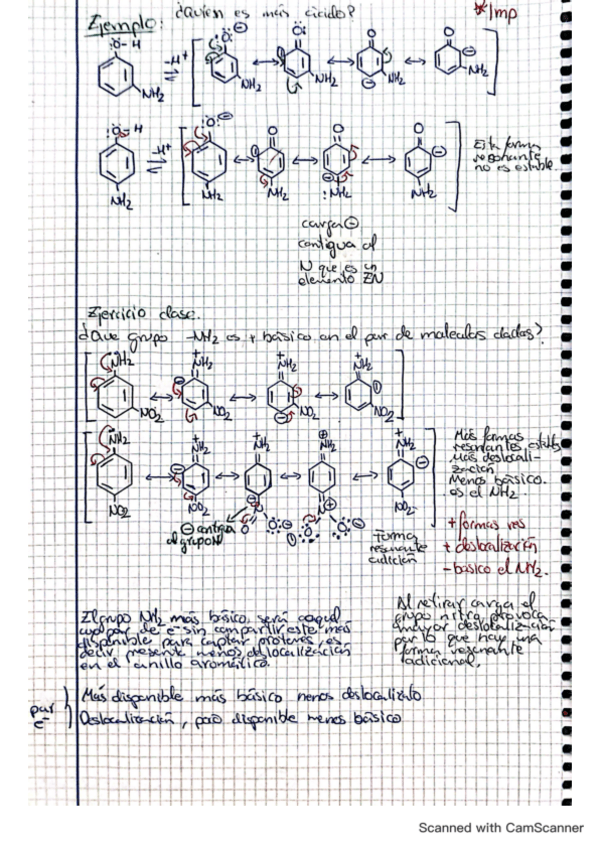 Ejemplo: ¿Quién es más ácido?
*Imp
:Ö-H
-H⁺
NH₂
:Ö-H
-H⁺
NH₂
Esta forma
resonante
no es estable.
carga ⊖
contigua al
N que es un
elemento EN
Ejercicio clase.
¿Que grupo -NH₂ es + básico en el par de moleculas dadas?
NH₂
NO₂
NH₂
NO₂
Más formas
resonantes estables
Más deslocali-
zación
Menos básico
es el NH₂.
⊖ contigua
al grupo N
Forma
resonante
adición
+ formas res
+ deslocalización
- basico el NH₂.
El grupo NH₂ más básico, será aquel
cuyo par de e⁻ sin compartir este más
disponible para captar protones, es
decir presente menos deslocalización
en el anillo aromático.
Al retirar carga el
grupo nitro provoca
mayor deslocalización
por lo que hay una
forma resonante
adicional.
par
e⁻
Más disponible más básico menos deslocalizado
Deslocalización, poco disponible menos básico
Scanned with CamScanner